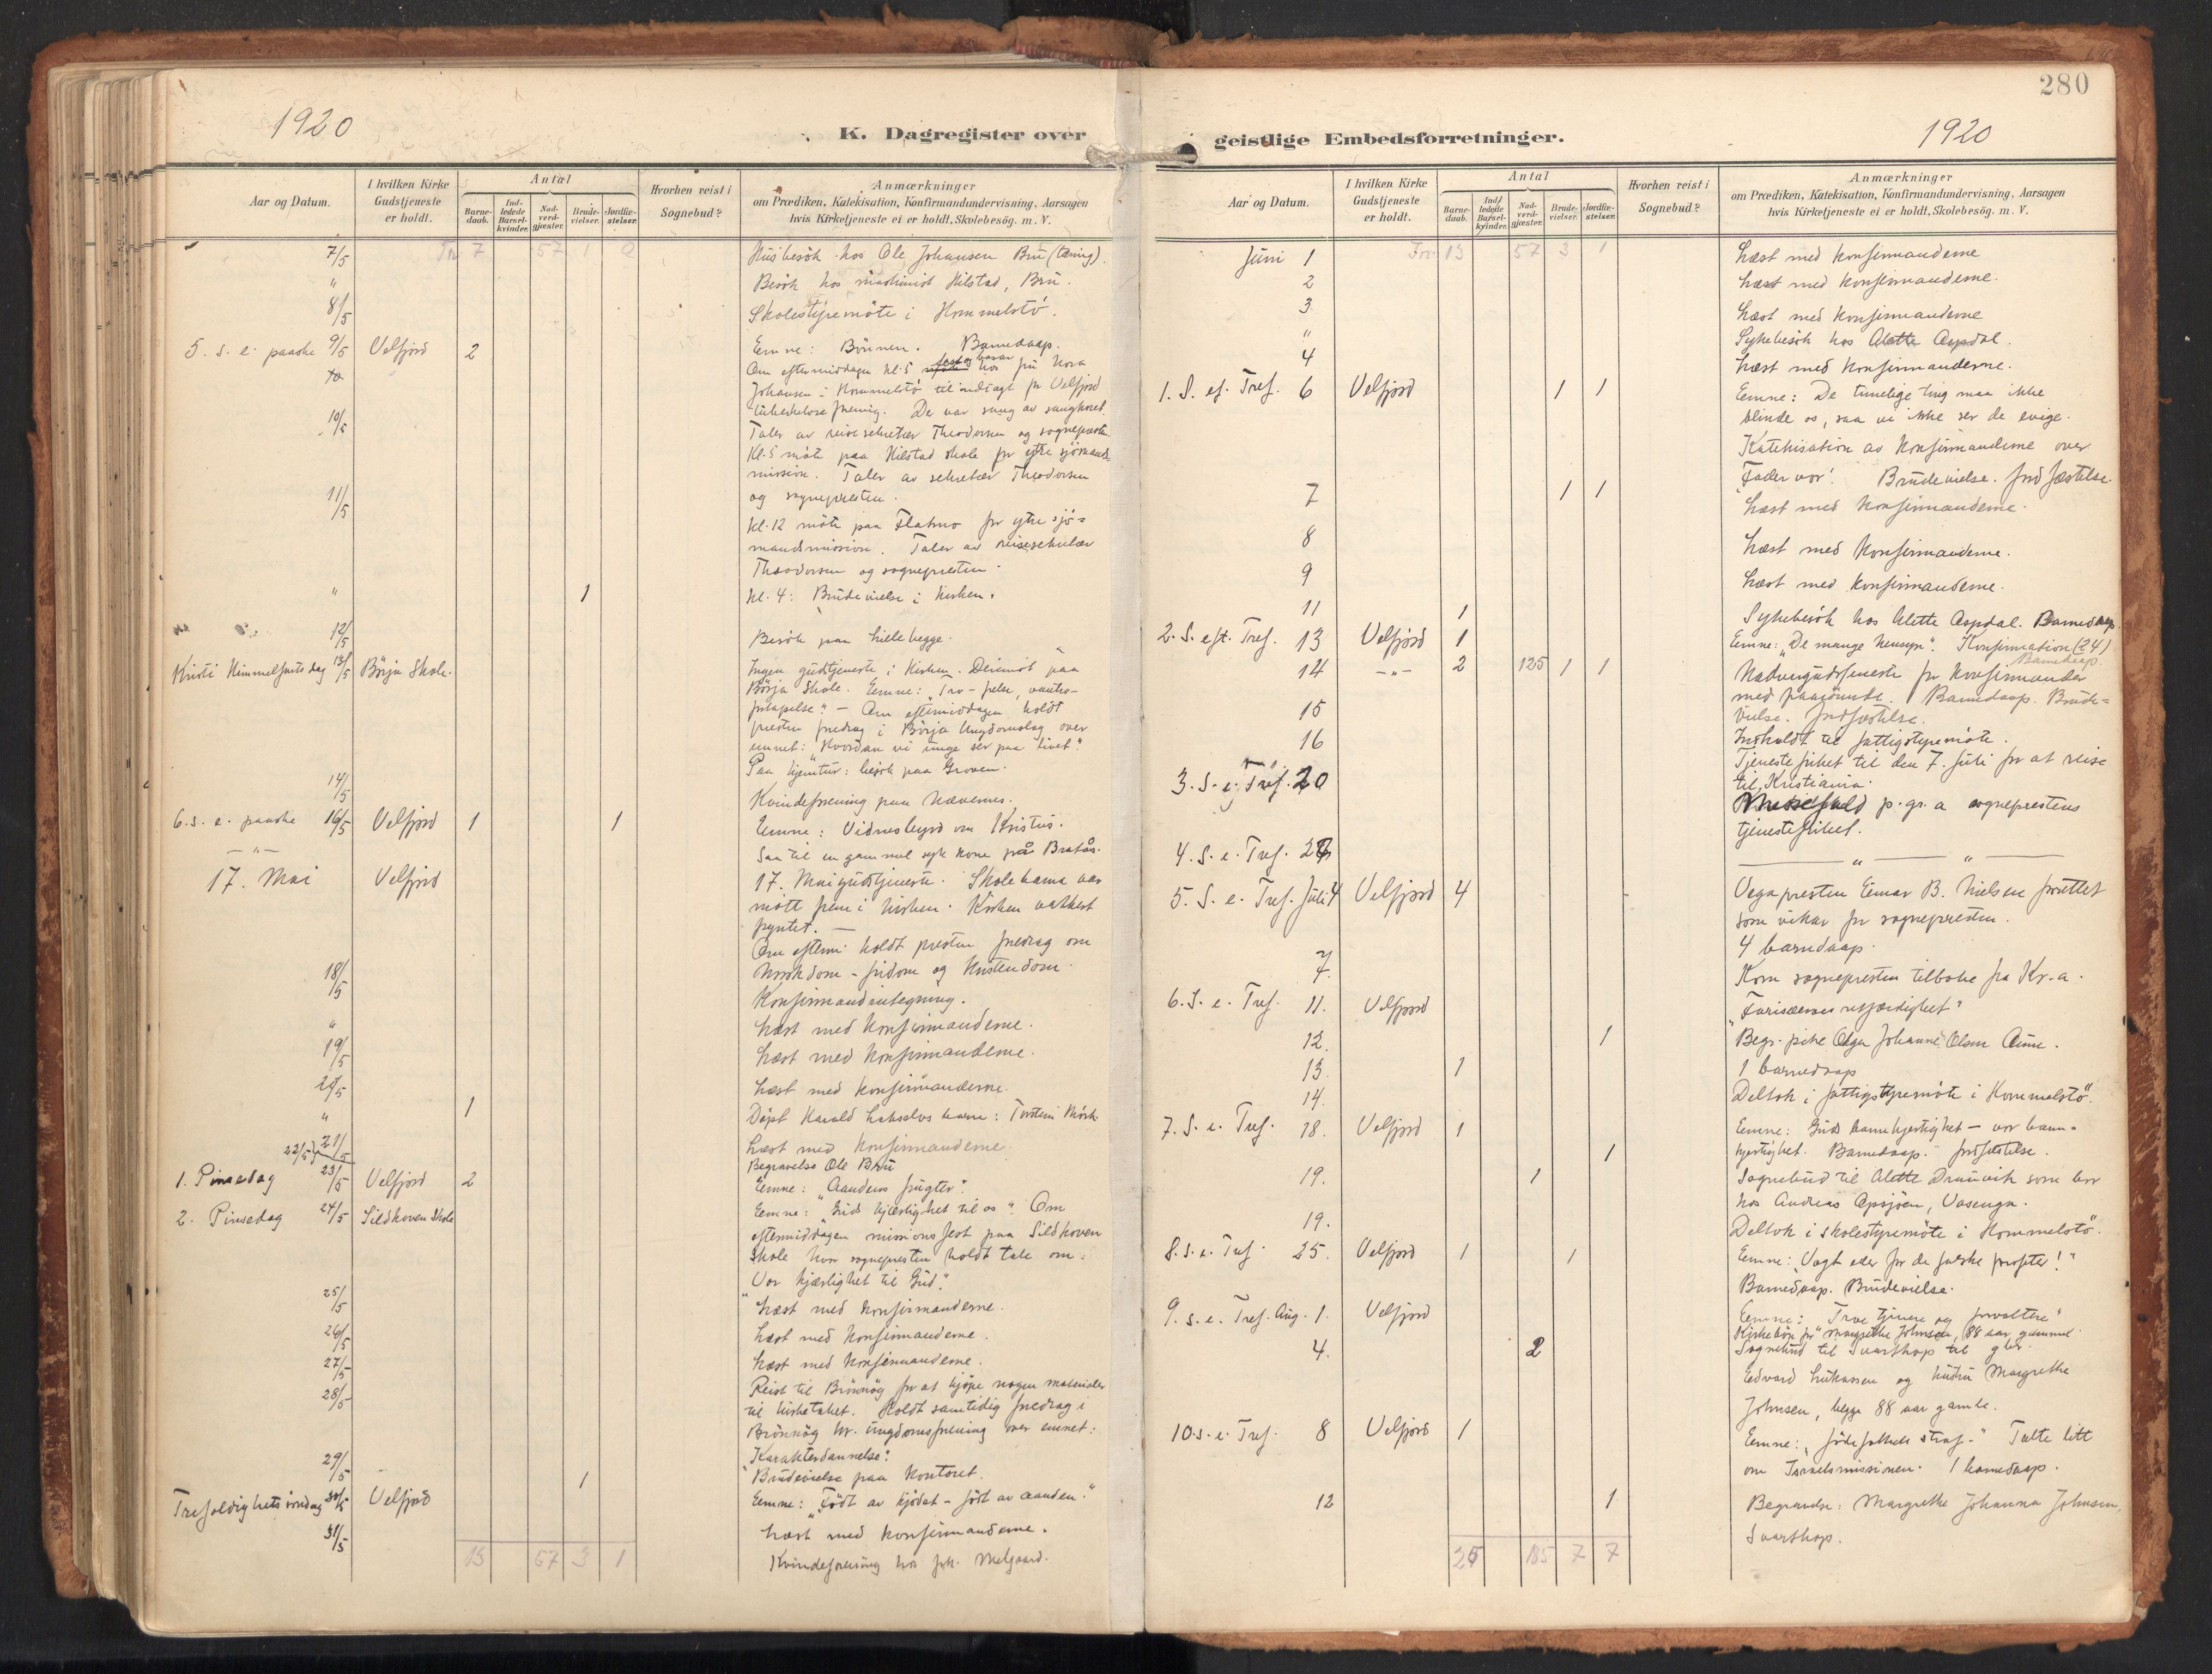 280
1920
K. Dagregister over
Aar og Datum.
I hvilken Kirke Gudstjeneste er holdt.
Antal
Barnedaab.
Indledede Barselkvinder.
Nadverdgjæster.
Brudevielser.
Jordfæstelser.
Hvorhen reist i Sognebud?
Anmærkninger
om Prædiken, Katekisation, Konfirmandundervisning, Aarsagen
hvis Kirketjeneste ei er holdt, Skolebesøg. m. V.
7/5 7 57 1 0 Husbesök hos Ole Johansen Bru (tæring).
" Besök hos maskinist Hilstad, Bru.
8/5 Skolestyremöte i Hommelstö.
5. s. e. paaske 9/5 Velfjord 2 Emne: Bönnen. Barnedaap.
Om eftermiddagen kl. 5 hos fru Nora
Johansen i Hommelstö til indtægt for Velfjord
Der var sang av sangkoret.
10/5 Taler av reisesekretær Theodorsen og sognepresten
Kl. 5 möte paa Hilstad skole for ytre sjömands-
mission. Taler av sekretær Theodorsen
og sognepresten.
11/5 kl. 12 möte paa Flatmo for ytre sjö-
mandsmission. Taler av reisesekretær
Theodorsen og sognepresten.
" 1 kl. 4: Brudevielse i kirken.
12/5 Besök paa
Kristi Himmelfartsdag 13/5 Börja Skole. Ingen gudstjeneste i kirken. Derimot paa
Börja Skole. Emne: "Tro - frelse, vantro-
fortapelse." - Om eftermiddagen holdt
presten foredrag i Börja Ungdomslag over
emnet: "Hvordan vi unge ser paa livet."
Paa hjemtur: besök paa Groven.
14/5 Kvindeforening paa Nævernes.
6. s. e. paaske 16/5 Velfjord 1 1 Emne: Vidnesbyrd om Kristus.
— " — Saa til en gammel syk kone på Bratås.
17. Mai Velfjord 17. Maigudstjeneste. Skolebarna var
mött frem i kirken. Kirken vakkert
pyntet. —
Om efterm. holdt presten foredrag om
Norskdom - fridom og Kristendom.
18/5 Konfirmandintegning.
" Læst med konfirmanderne.
19/5 Læst med konfirmanderne.
20/5 Læst med konfirmanderne.
" 1 Döpt Harald barn: Torstein
22/5 21/5 Læst med konfirmanderne
Begravelse Ole Bru
1. Pinsedag 23/5 Velfjord 2 Emne: "Aandens frugter".
2. Pinsedag 24/5 Sildhoven Skole Emne: "Guds kjærlighet til os" Om
eftermiddagen missionsfest paa Sildhoven
skole hvor sognepresten holdt tale om:
"Vor kjærlighet til Gud."
25/5 Læst med konfirmanderne.
26/5 Læst med konfirmanderne.
27/5 Læst med konfirmanderne.
28/5 Reist til Brönnöy for at kjöpe nogen materialer
til kirketaket. Holdt samtidig foredrag i
Brönnöy kr. ungdomsforening over emnet:
"Karakterdannelse".
29/5 1 Brudevielse paa kontoret.
Trefoldighetssöndag 30/5 Velfjord Emne: "Födt av kjödet - födt av aanden."
31/5 Læst med konfirmanderne.
Kvindeforening hos frk. Melgaard.
13 57 3 1
1920
geistlige Embedsforretninger.
Aar og Datum.
I hvilken Kirke Gudstjeneste er holdt.
Antal
Barnedaab.
Indledede Barselkvinder.
Nadverdgjæster.
Brudevielser.
Jordfæstelser.
Hvorhen reist i Sognebud?
Anmærkninger
om Prædiken, Katekisation, Konfirmandundervisning, Aarsagen
hvis Kirketjeneste ei er holdt, Skolebesøg. m. V.
Juni 1 13 57 3 1 Læst med konfirmanderne
2 Læst med konfirmanderne.
3 Læst med konfirmanderne
" Sykebesök hos Alette Aspdal.
4 Læst med konfirmanderne.
1. S. ef. Tref. 6 Velfjord 1 1 Emne: De timelige ting maa ikke
blinde os, saa vi ikke ser de evige.
Katekisation av konfirmanderne over
"Fader vor". Brudevielse. Jordfæstelse.
7 1 1 Læst med konfirmanderne.
8 Læst med konfirmanderne.
9 Læst med konfirmanderne.
11 1 Sykebesök hos Alette Aspdal. Barnedaap.
2. S. eft. Tref. 13 Velfjord 1 Emne: "De mange hensyn". Konfirmation (24)
Barnedaap.
14 — " — 2 125 1 1 Nadvergudstjeneste for konfirmander
med paarörende. Barnedaap. Brude-
vielse. Jordfæstelse.
15 Indkaldt til fattigstyremöte.
16 Tjenestefrihet til den 7. juli for at reise
til Kristiania.
3. S. e. Tref. 20 Messefald p. gr. a sogneprestens
tjenestefrihet.
4. S. e. Tref. 27 — " — " —
5. S. e. Tref. Juli 4 Velfjord 4 Vegapresten Einar B. Nielsen forrettet
som vikar for sognepresten.
4 barnedaap.
7. Kom sognepresten tilbake fra Kr.a.
6. S. e. Tref. 11. Velfjord "Farisæernes retfærdighet"
12. 1 Begr. pike Olga Johanne Olsen Aune.
13. 1 1 barnedaap
14. Deltok i fattigstyremöte i Hommelstö.
7. S. e. Tref. 18. Velfjord 1 Emne: Guds barmhjertighet - vor barm-
1 hjertighet. Barnedaap. Jordfæstelse.
19. 1 Sognebud til Alette som bor
hos Andreas
19. Deltok i skolestyremöte i Hommelstö.
8. s. e. Tref. 25. Velfjord 1 1 Emne: "Vogt eder for de falske profeter!"
Barnedaap. Brudevielse.
9. s. e. Tref. Aug. 1. Velfjord Emne: "Tro tjenere og forvaltere"
Kirkebön for Margrethe Johnsen, 88 aar gammel.
4. 2 Sognebud til Svarthop til
Edvard Lukassen og Margrethe
Johnsen, begge 88 aar gamle.
10. s. e. Tref. 8 Velfjord 1 Emne: "Jödefolkets straf." Talte litt
om Israelsmissionen. 1 barnedaap.
12 1 Begravelse: Margrethe Johanna Johnsen,
Svarthop.
25 185 7 7